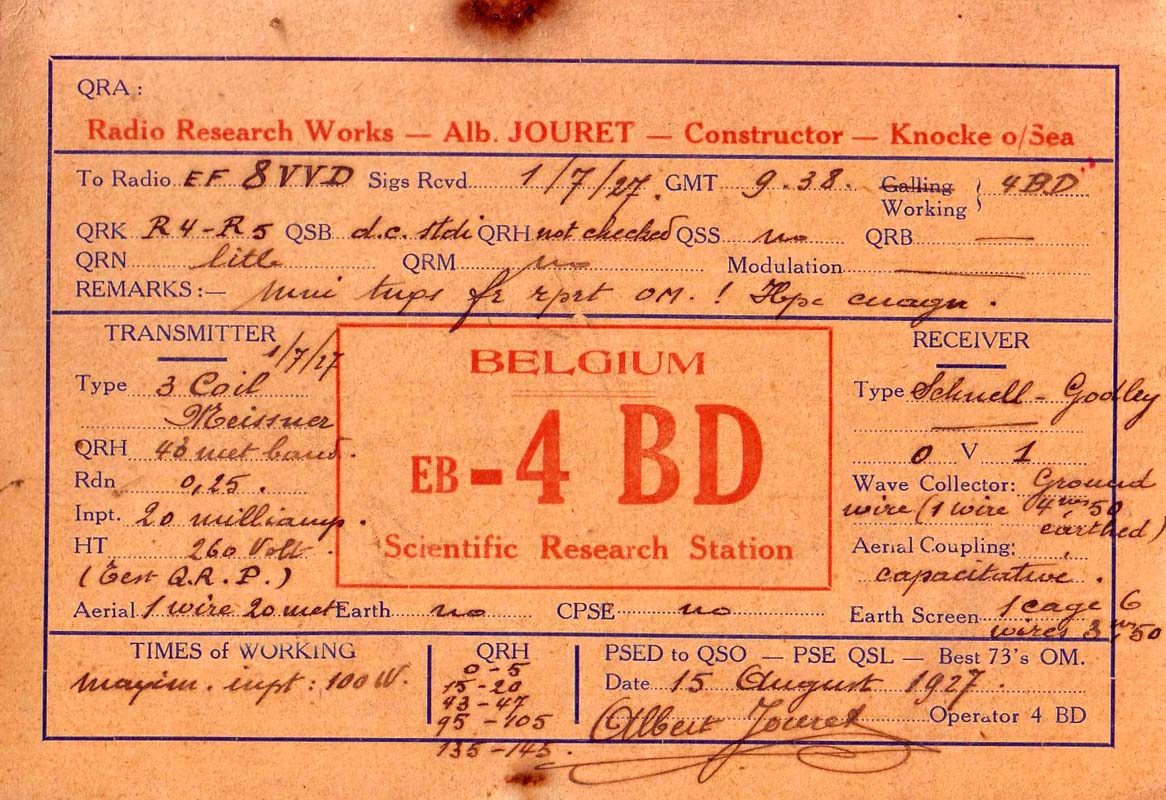 QRA :
Radio Research Works — Alb. JOURET — Constructor — Knocke o/Sea
To Radio EF 8VVD Sigs Rcvd 1/7/27. GMT 9.38. Calling Working 4BD
QRK R4-R5 QSB d.c. stdi QRH not checked QSS no QRB —
QRN litle QRM no Modulation —
REMARKS :— mni tnps fr rprt OM. ! Hpe cuagn .
TRANSMITTER
1/7/27
Type 3 Coil
Meissner
QRH 43 met band.
Rdn 0,25 .
Inpt. 20 milliamp.
HT 260 Volt .
(Test Q.R.P.)
Aerial 1 wire 20 met Earth no CPSE no
BELGIUM
EB-4 BD
Scientific Research Station
RECEIVER
Type Schnell - Godley
0 V 1
Wave Collector: Ground
wire (1 wire 4ms 50
earthed)
Aerial Coupling:
capacitative .
Earth Screen 1 cage 6
wires 3m50
TIMES of WORKING
maxim. inpt : 100 W.
QRH
0-5
15-20
43-47
95-105
135-145.
PSED to QSO — PSE QSL — Best 73's OM.
Date 15 August 1927.
Albert Jouret Operator 4 BD